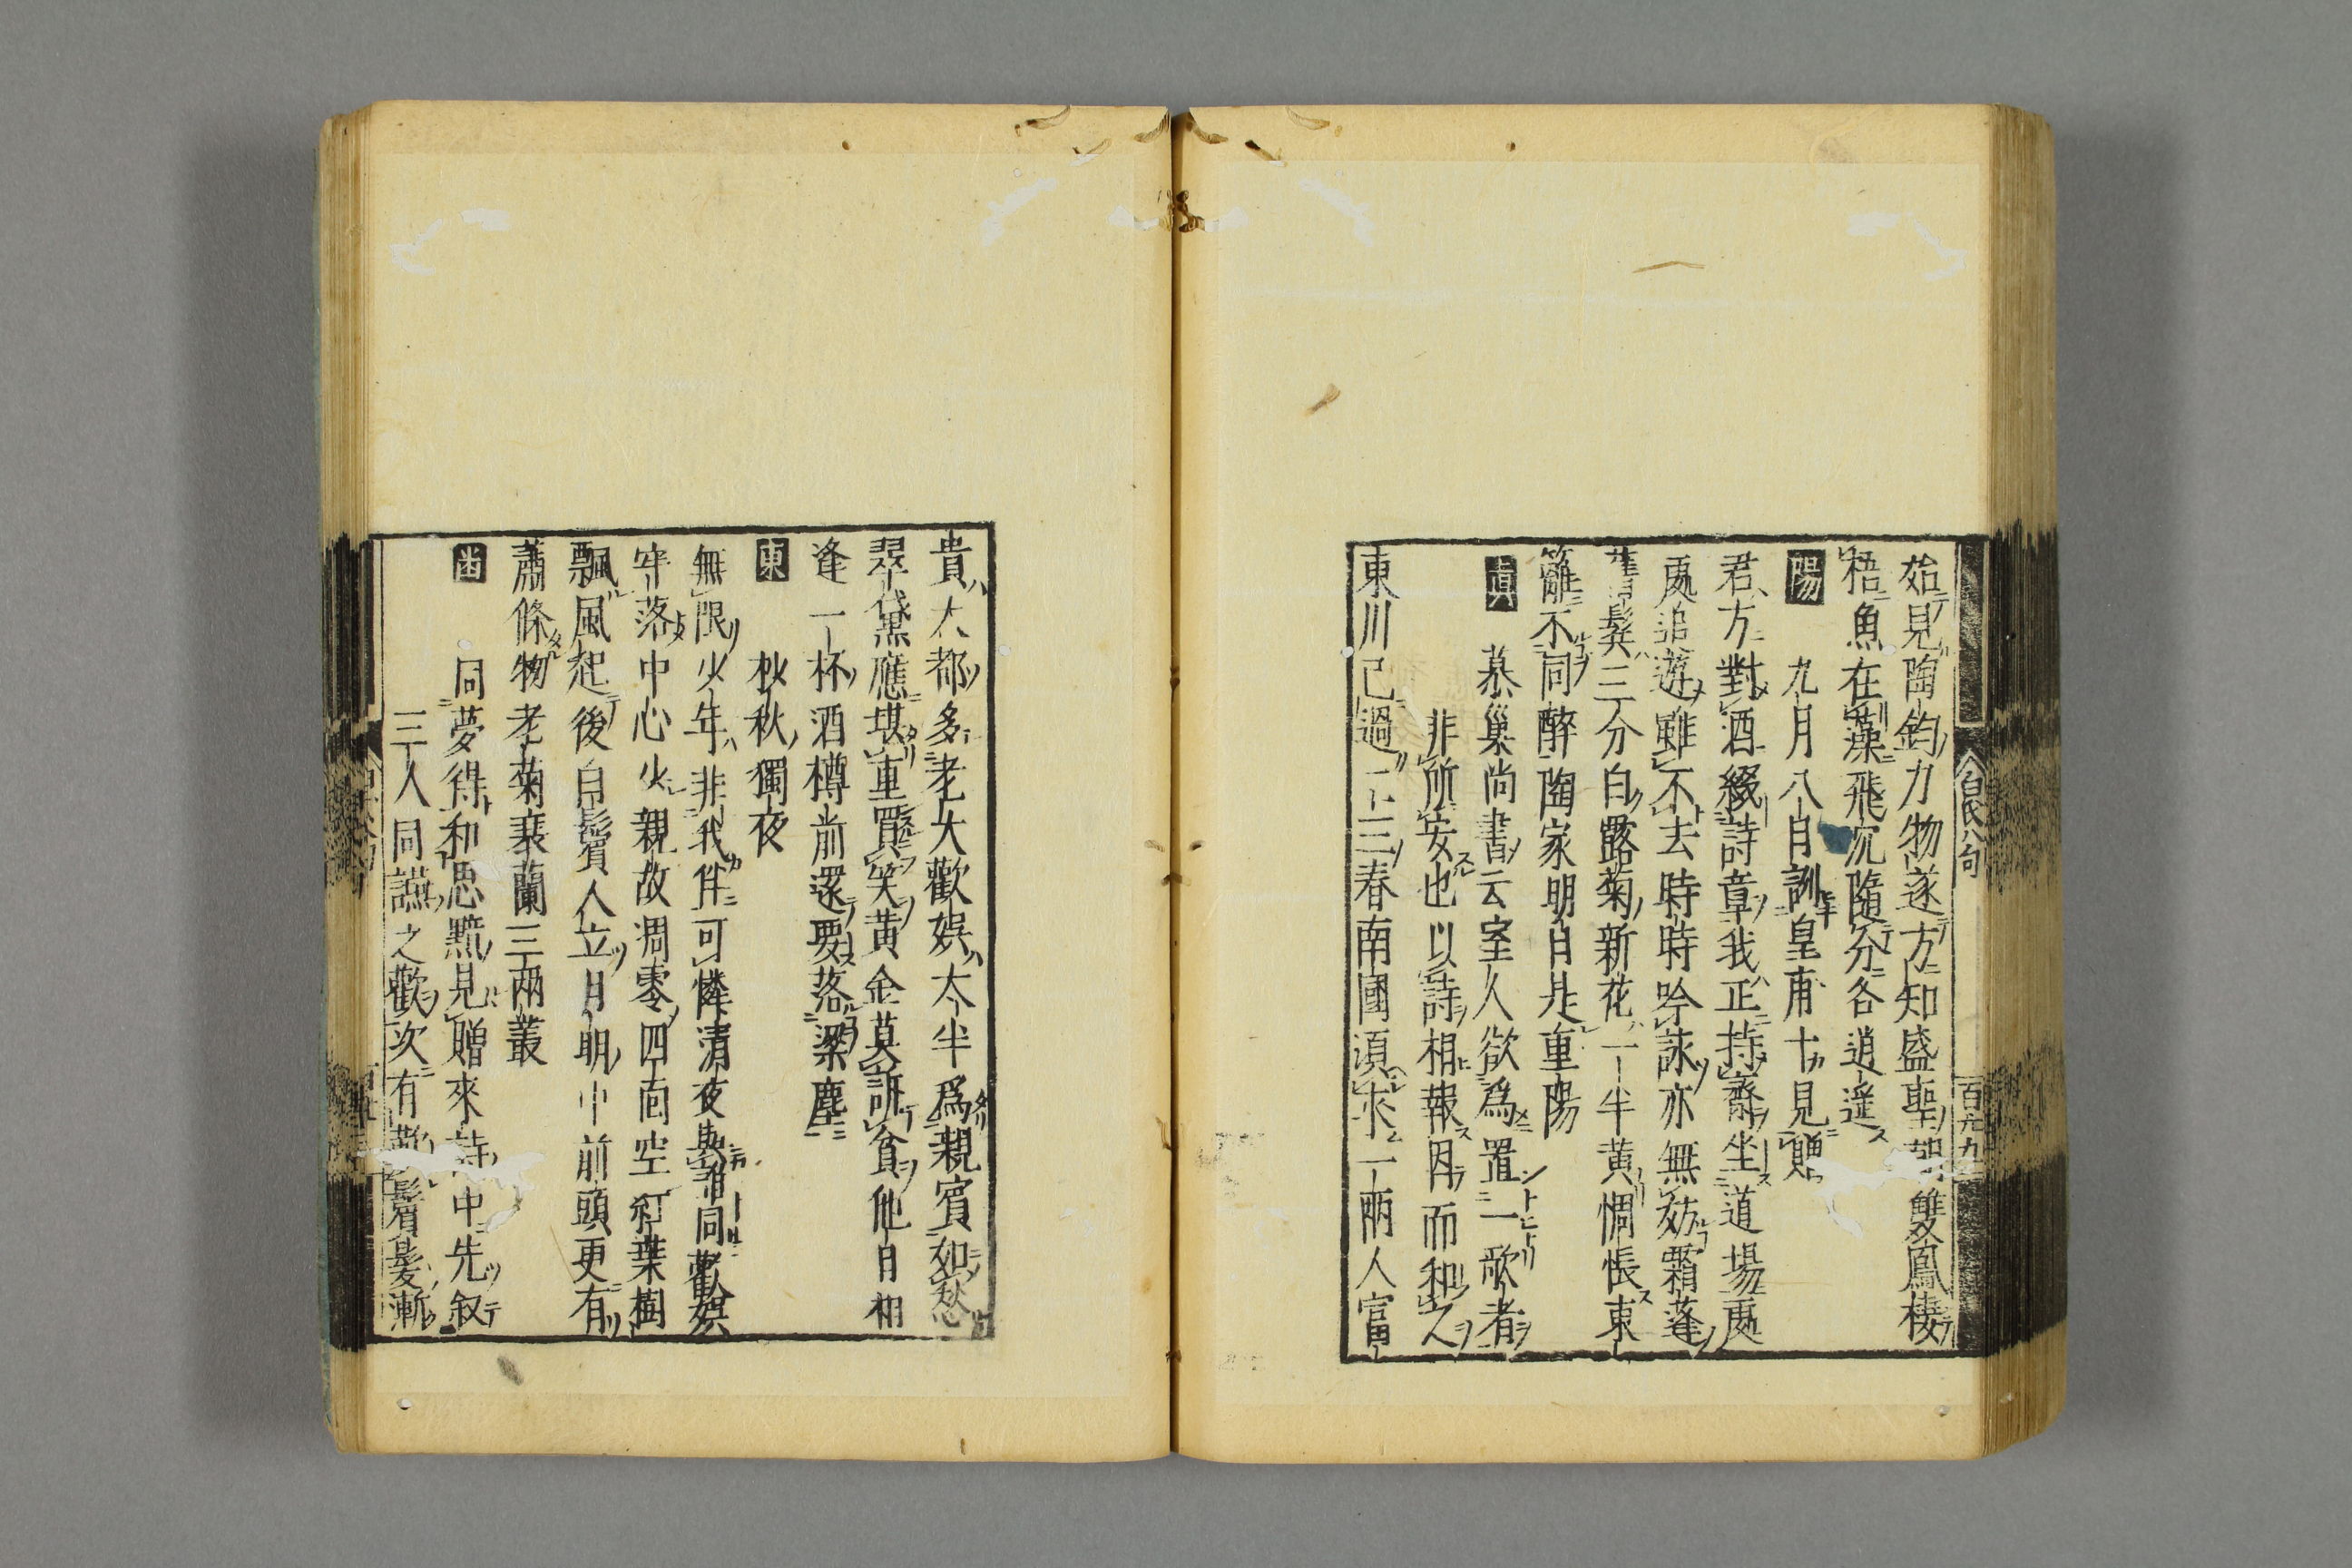 始見陶鈞力物遂方知盛聖朝雙鳳棲
梧魚在藻飛沉隨分各逍遥
陽
九月八日訓皇甫十見贈
君方對酒綴詩章我正持齋坐道場處
處追遊雖不去時時吟詠亦無妨霜蓬
舊鬢三分白露菊新花一半黃惆悵東
籬不同醉陶家明日是重陽
真
慕巢尚書云室人欲爲置一歌者
非所安也以詩相報因而和之
東川已過二三春南國須求一兩人富
白氏八句
百九九
貴大都多老大歡娛太半爲親賓如愁
翠黛應堪重買笑黃金莫訴貧他日相
逢一杯酒樽前還要落梁塵
東
秋秋獨夜
無限少年非我伴可憐清夜與誰同歡娛
牢落中心少親故凋零四面空紅葉樹
飄風起後白鬚人立月明中前頭更有
蕭條物老菊衰蘭三兩叢
同夢得和思黯見贈來詩中先叙
三人同讌之歡次有歎鬢髮漸